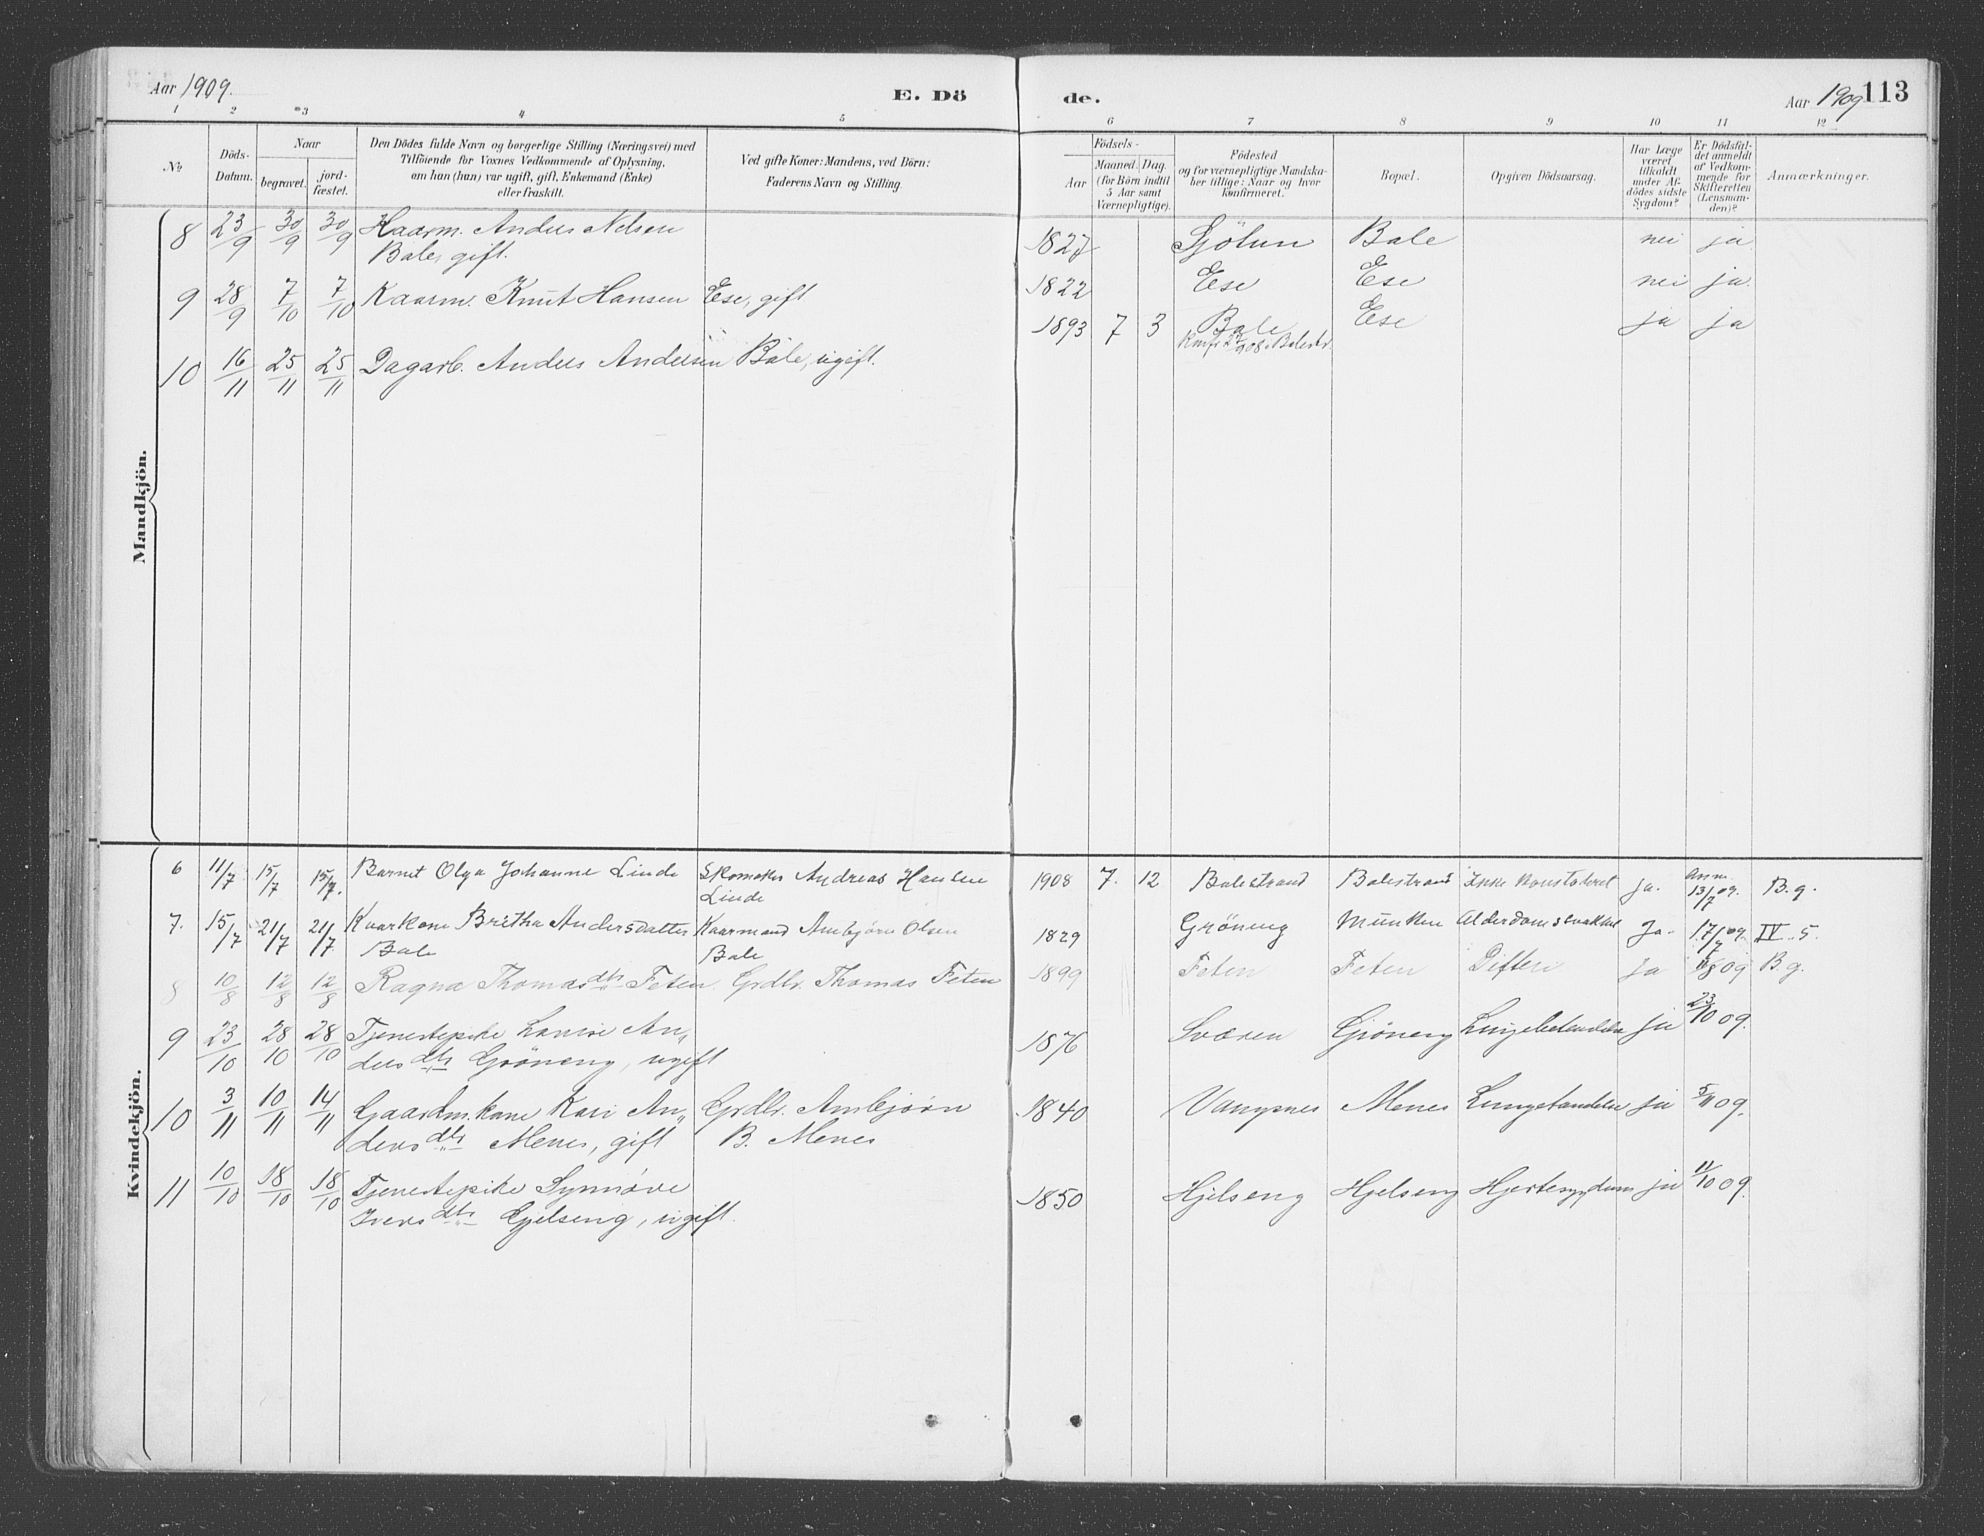 Aar 1909.
E. Dö
de.
Aar 1909
113
1 2 3 4 5 6 7 8 9 10 11 12
No
Döds-
Datum.
Naar
begravet.
jord-
fæstet.
Den Dödes fulde Navn og borgerlige Stilling (Næringsvei) med
Tilföiende for Voxnes Vedkommende af Oplysning,
om han (hun) var ugift, gift, Enkemand (Enke)
eller fraskilt.
Ved gifte Koner: Mandens, ved Börn:
Faderens Navn og Stilling.
Födsels-
Aar
Maaned. Dag.
(for Börn indtil
5 Aar samt
Værnepligtige).
Födested
og for værnepligtige Mandska-
ber tillige: Naar og hvor
konfirmeret.
Bopæl.
Opgiven Dödsaarsag.
Har Læge
været
tilkaldt
under Af-
dödes sidste
Sygdom?
Er Dödsfal-
det anmeldt
af Vedkom-
mende for
Skifteretten
(Lensman-
den)?
Anmærkninger.
Mandkjön.
8 23/9 30/9 30/9 Kaarm. Anders Nelsen 1827 Sjötun Bale nei ja
Bale, gift.
9 28/9 7/10 7/10 Kaarm. Knut Hansen Ese, gift 1822 Ese Ese nei ja.
10 16/11 25/11 25/11 Dagarb. Anders Andersen Bale, ugift. 1893 7 3 Bale Ese ja ja
Konf. 1908 i Balestr.
Kvindekjön.
6 11/7 15/7 15/7. Barnet Olga Johanne Linde Skomaker Andreas Hansen 1908 7. 12 Balestrand Balestrand Ikke konstateret ja. Anm. 13/7 09. B.g.
Linde
7. 15/7 21/7 21/7 Kaarkone Britha Andersdatter Kaarmand Ambjørn Olsen 1829 Gröneng Munken Alderdomssvakhet Ja. 17/7 09. IV. 5.
Bale Bale
8 10/8 12/8 12/8 Ragna Thomasdtr Feten Grdbr. Thomas Feten 1899 Feten Feten Difteri ja 11/8 09 B.g.
9 23/10 28/10 28/10 Tjenestepike Lovise An„ 1876 Sværen Gröneng Lungebetændelse ja 23/10 09.
dersdtr Gröneng, ugift
10 3/11 10/11 14/11 Gaardm.kone Kari An„ Grdbr. Ambjørn 1840 Vangsnes Menes Lungebetændelse ja 5/11 09.
dersdtr Menes, gift B. Menes
11 10/10 18/10 18/10 Tjenestepike Synnøve 1850 Hjelseng Hjelseng Hjertesygdom ja 11/10 09.
Iversdtr Gjelseng, ugift.